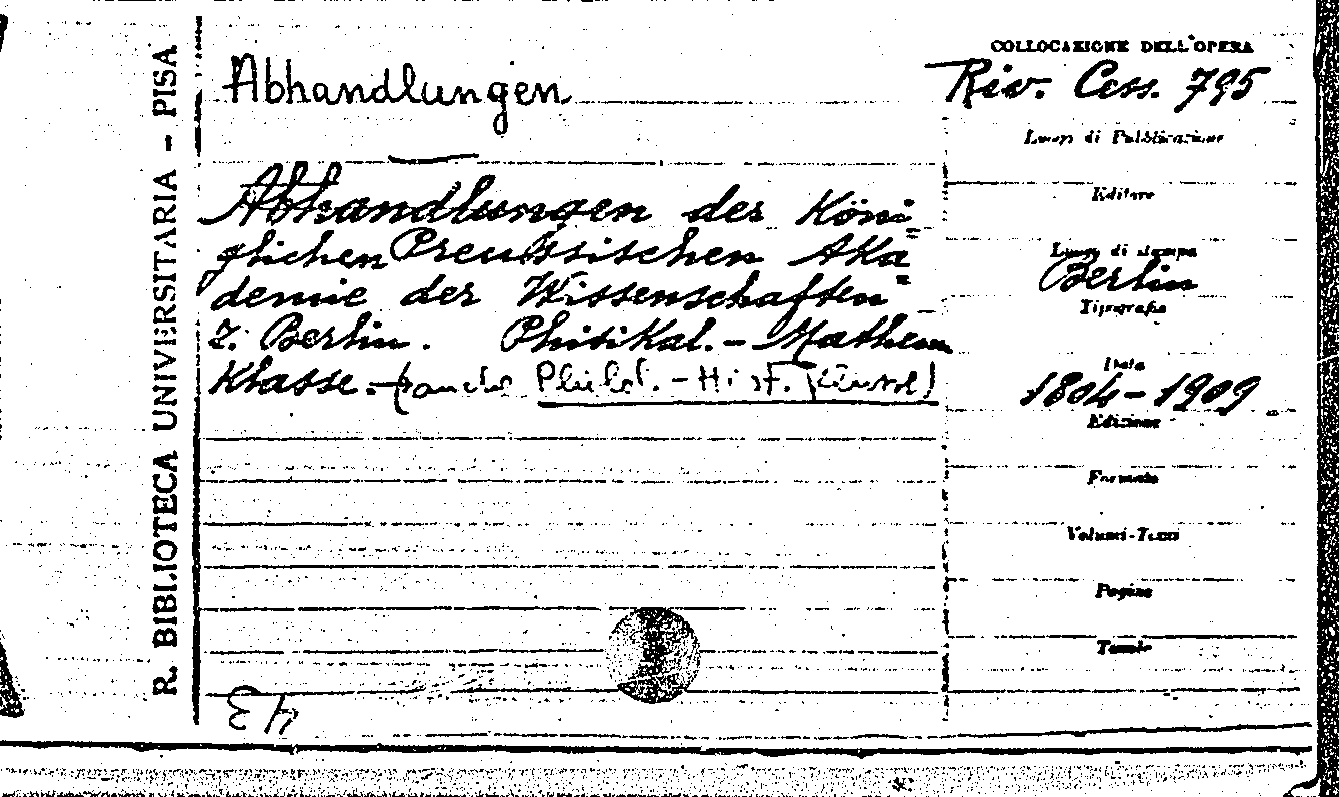 R. BIBLIOTECA UNIVERSITARIA - PISA
Abhandlungen
Abhandlungen der Köni-
glichen Preussischen Aka=
demie der Wissenschaften
z. Berlin. Phisikal. - Mathem
Klasse. - (anche Philol. - Hist. Klasse)
43
COLLOCAZIONE DELL'OPERA
Riv. Cess. 795
Luogo di Pubblicazione
Editore
Luogo di stampa
Berlin
Tipografia
Data
1804-1909
Edizione
Formato
Volumi-Tomi
Pagine
Tavole